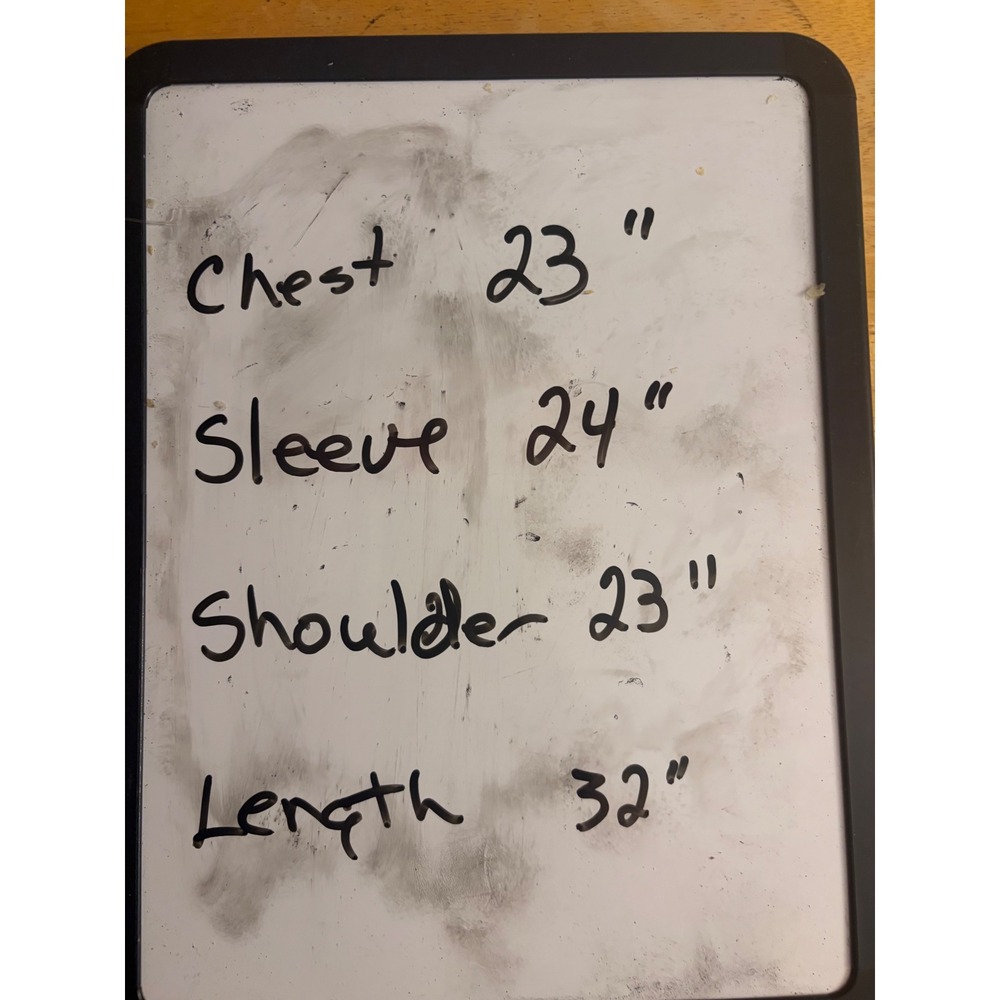 Chest 23"
Sleeve 24"
Shoulder 23"
Length 32"